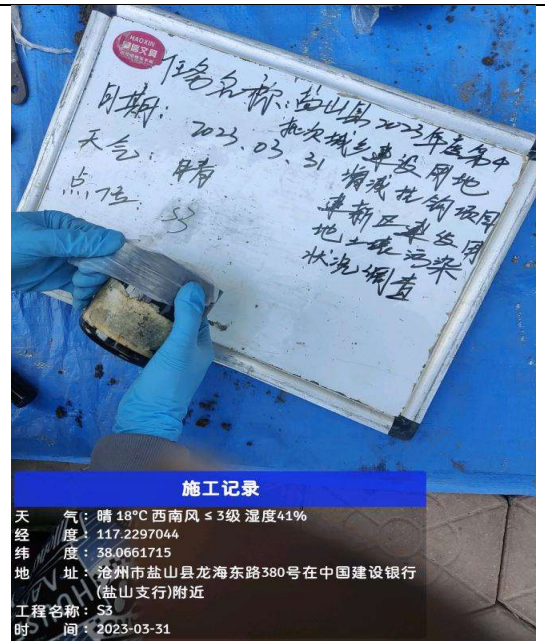 HAOXIN
皓信文具
任务名称:盐山县2023年度第4
批次城乡建设用地
增减挂钩项目
建新区建设用
地土壤污染
状况调查
日期:2023.03.31
天气:晴
点位:S3
施工记录
天 气:晴 18°C 西南风 ≤ 3级 湿度41%
经 度:117.2297044
纬 度:38.0661715
地 址:沧州市盐山县龙海东路380号在中国建设银行
(盐山支行)附近
工程名称:S3
时 间:2023-03-31